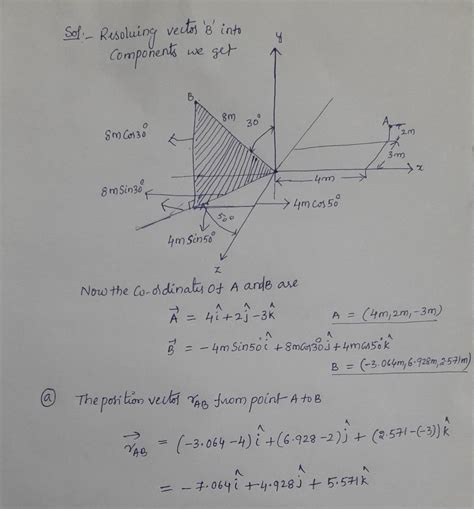 Sol:- Resolving vector 'B' into
Components we get
y
B
8m
30°
A
2m
8mCos30°
3m
x
4m
8mSin30°
4mCos50°
50°
4mSin50°
z
Now the Co-ordinates Of A and B are
A⃗ = 4î+2ĵ-3k̂
A = (4m,2m,-3m)
B⃗ = -4mSin50°î+8mCos30°ĵ+4mCos50°k̂
B = (-3.064m,6.928m,2.571m)
(a) The position vector r⃗AB from point A to B
r⃗AB = (-3.064-4)î+(6.928-2)ĵ+(2.571-(-3))k̂
= -7.064î+4.928ĵ+5.571k̂